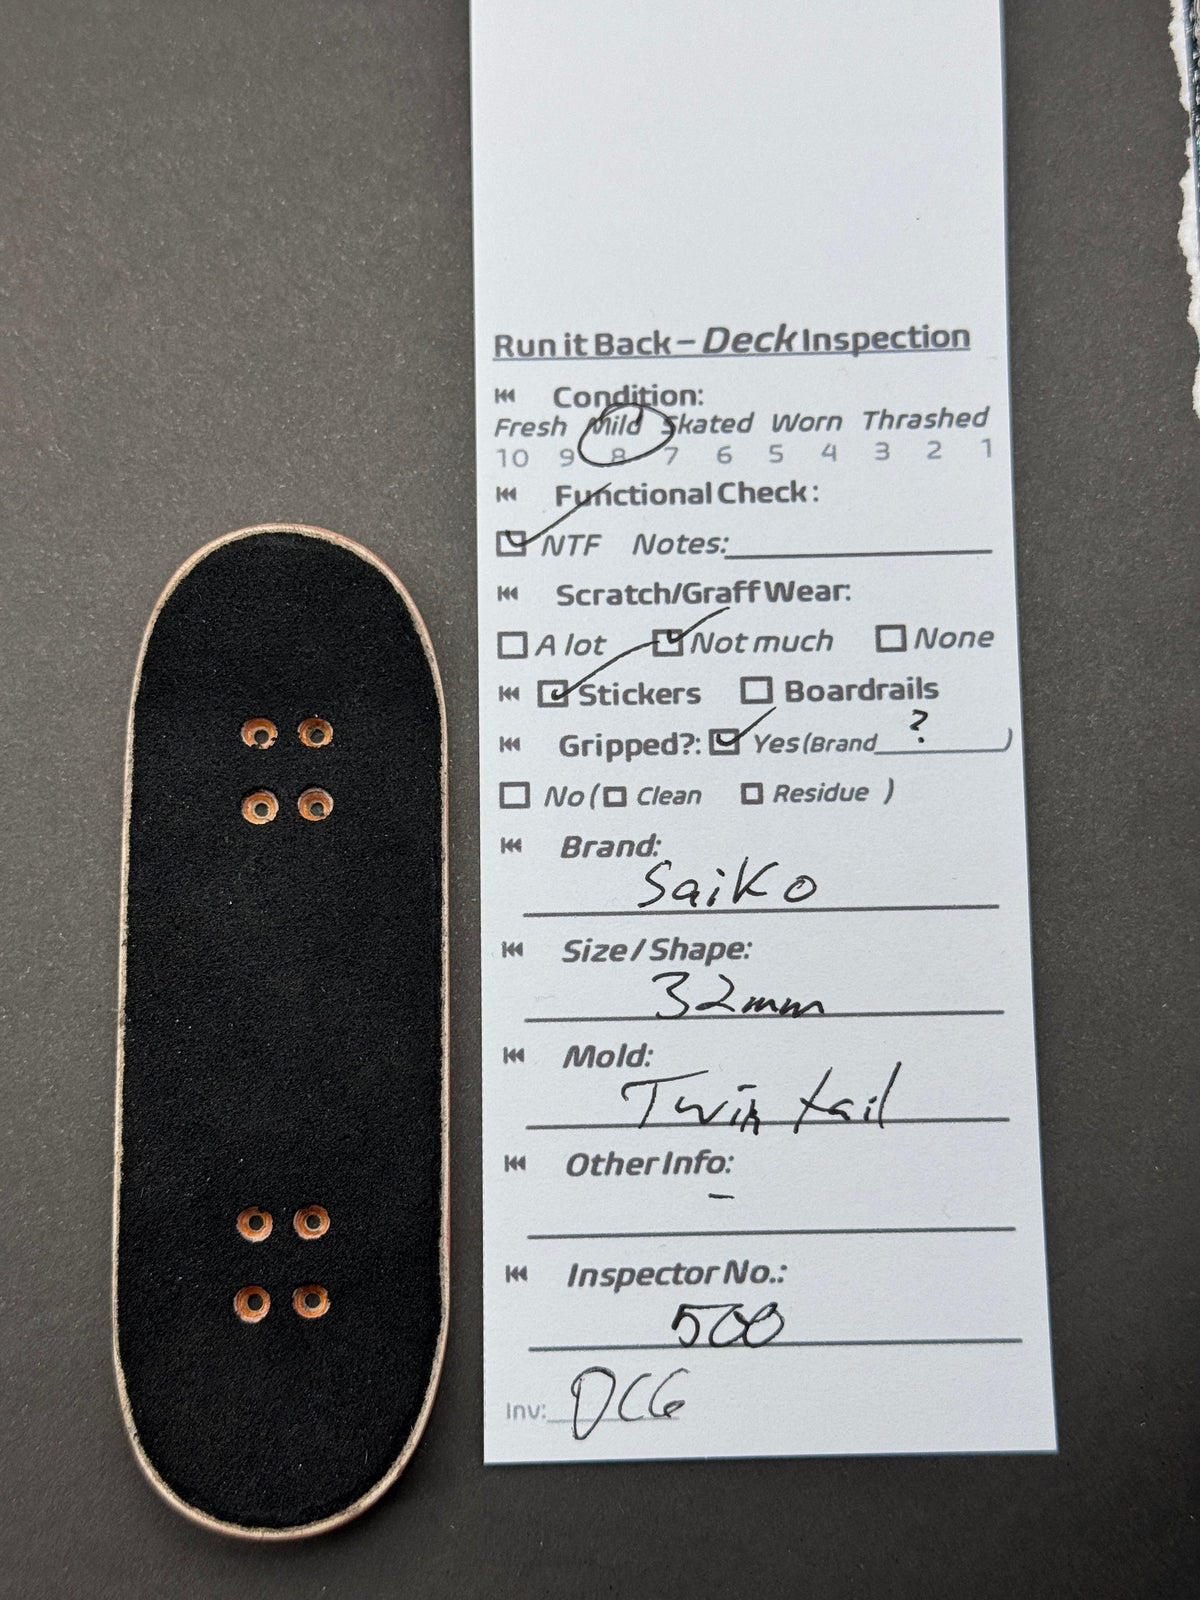 Run it Back – Deck Inspection
Condition:
Fresh Mild Skated Worn Thrashed
10 9 8 7 6 5 4 3 2 1
Functional Check:
NTF Notes:
Scratch/Graff Wear:
A lot Not much None
Stickers Boardrails
Gripped?: Yes (Brand ? )
No ( Clean Residue )
Brand:
Saiko
Size / Shape:
32mm
Mold:
Twin tail
Other Info:
–
Inspector No.:
500
Inv: OCG